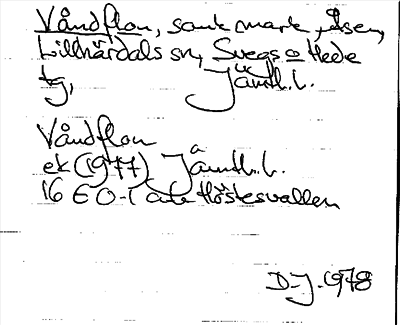 Våndflon, sank mark, Åsen,
Lillhärdals sn, Svegs o Hede
tg, Jämtl. l.
Våndflon
ek (1977) Jämtl. l.
16 E 0-1 a
D-J. 1978